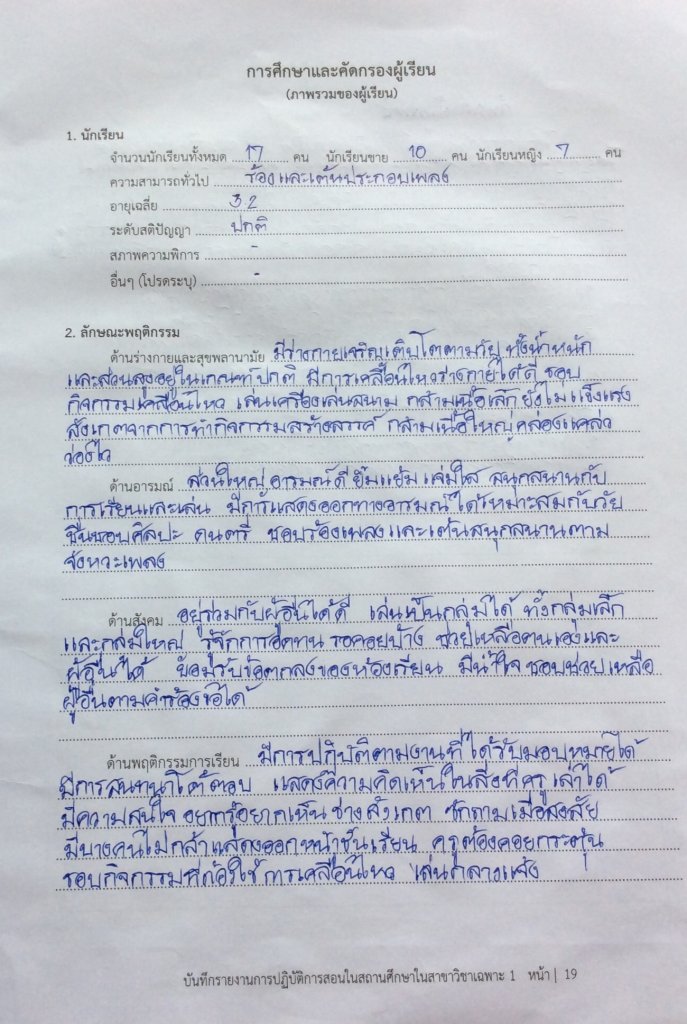 การศึกษาและคัดกรองผู้เรียน
(ภาพรวมของผู้เรียน)
1. นักเรียน
จำนวนนักเรียนทั้งหมด 17 คน นักเรียนชาย 10 คน นักเรียนหญิง 7 คน
ความสามารถทั่วไป ร้องและเต้นประกอบเพลง
อายุเฉลี่ย 32
ระดับสติปัญญา ปกติ
สภาพความพิการ -
อื่นๆ (โปรดระบุ) -
2. ลักษณะพฤติกรรม
ด้านร่างกายและสุขพลานามัย มีร่างกายเจริญเติบโตตามวัย ทั้งน้ำหนัก
และส่วนสูงอยู่ในเกณฑ์ปกติ มีการเคลื่อนไหวร่างกายได้ดี ชอบ
กิจกรรมเคลื่อนไหว เล่นเครื่องเล่นสนาม กล้ามเนื้อเล็กยังไม่แข็งแรง
สังเกตจากการทำกิจกรรมสร้างสรรค์ กล้ามเนื้อใหญ่คล่องแคล่ว
ว่องไว
ด้านอารมณ์ ส่วนใหญ่อารมณ์ดี ยิ้มแย้ม แจ่มใส สนุกสนานกับ
การเรียนและเล่น มีการแสดงออกทางอารมณ์ได้เหมาะสมกับวัย
ชื่นชอบศิลปะ ดนตรี ชอบร้องเพลงและเต้นสนุกสนานตาม
จังหวะเพลง
ด้านสังคม อยู่ร่วมกับผู้อื่นได้ดี เล่นเป็นกลุ่มได้ ทั้งกลุ่มเล็ก
และกลุ่มใหญ่ รู้จักการอดทน รอคอยบ้าง ช่วยเหลือตนเองและ
ผู้อื่นได้ ยอมรับข้อตกลงของห้องเรียน มีน้ำใจ ชอบช่วยเหลือ
ผู้อื่นตามคำร้องขอได้
ด้านพฤติกรรมการเรียน มีการปฏิบัติตามงานที่ได้รับมอบหมายได้
มีการสนทนาโต้ตอบ แสดงความคิดเห็นในสิ่งที่ครูเล่าได้
มีความสนใจ อยากรู้อยากเห็น ช่างสังเกต ซักถามเมื่อสงสัย
มีบางคนไม่กล้าแสดงออกหน้าชั้นเรียน ครูต้องคอยกระตุ้น
ชอบกิจกรรมที่ต้องใช้การเคลื่อนไหว เล่นกลางแจ้ง
บันทึกรายงานการปฏิบัติการสอนในสถานศึกษาในสาขาวิชาเฉพาะ 1 หน้า | 19